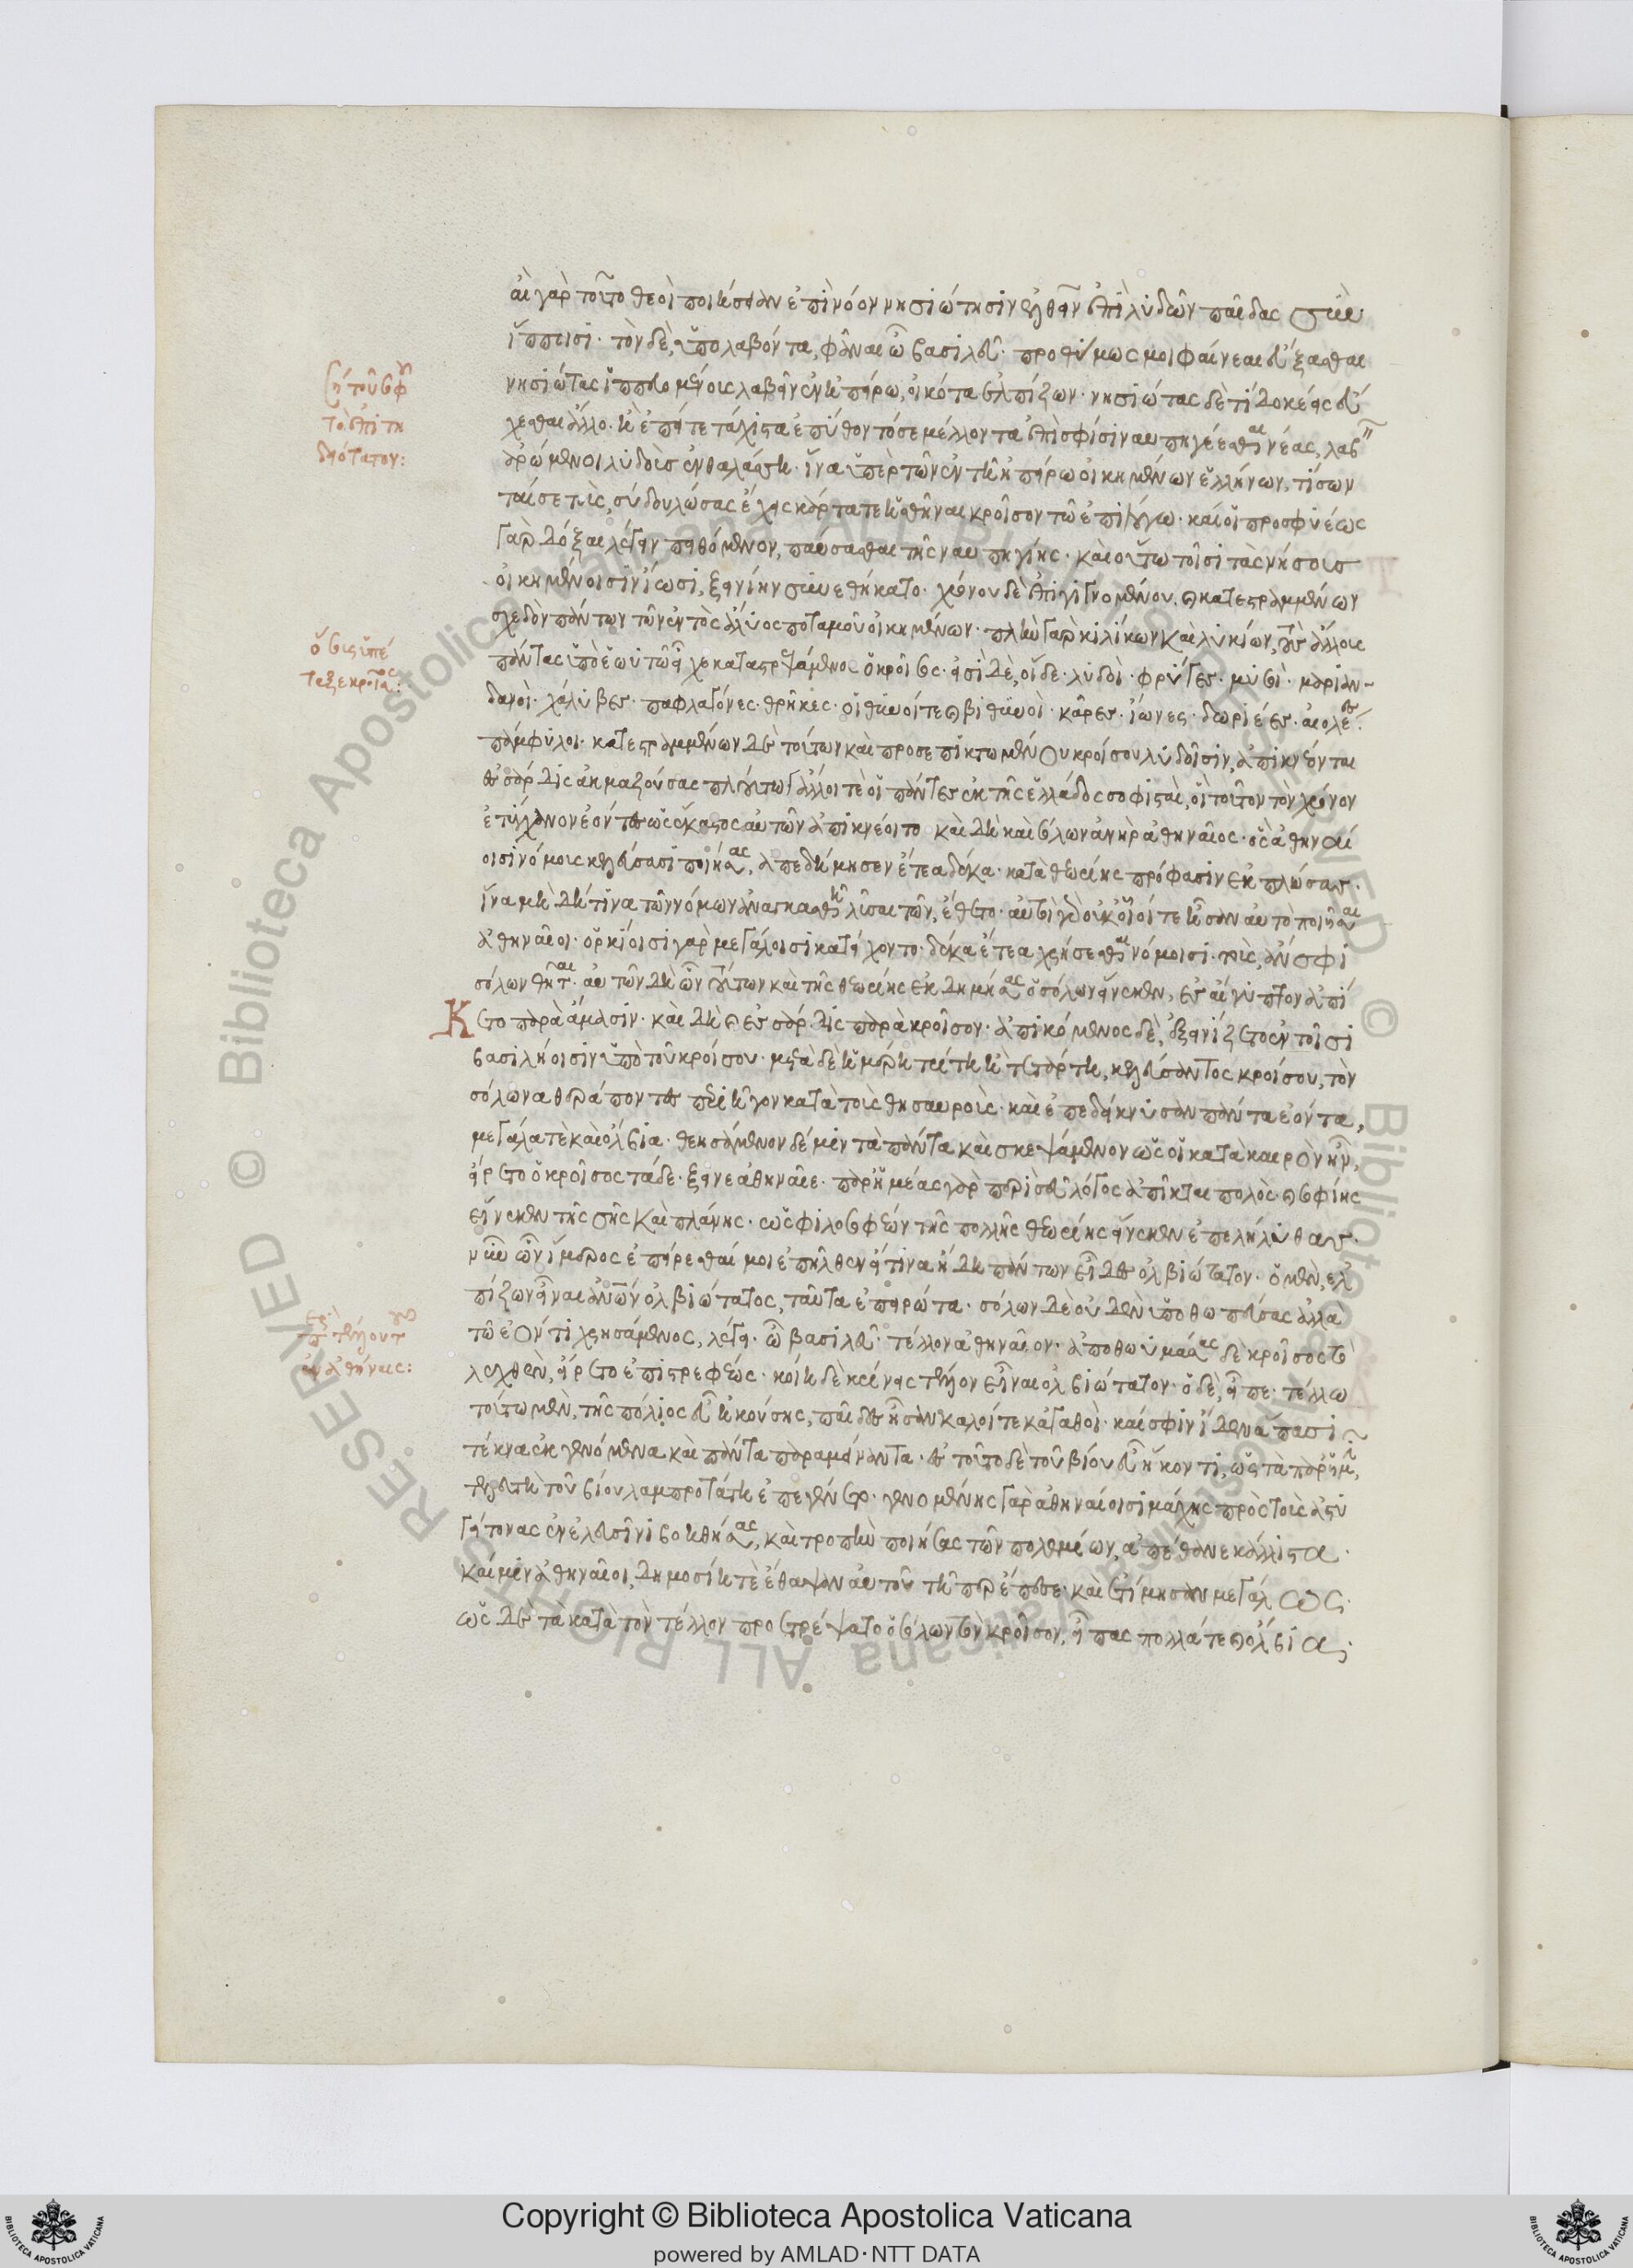 αἲ γὰρ τοῦτο θεοὶ ποιήσειαν ἐπὶ νόον νησιώτησιν ἐλθεῖν ἐπὶ λυδῶν παῖδας σὺν
ἵπποισι· τὸν δὲ, ὑπολαβόντα, φάναι ὦ βασιλεῦ· προθύμως μοι φαίνεαι εὔξασθαι
νησιώτας ἱππευομένους λαβεῖν ἐν ἠπείρω, οἰκότα ἐλπίζων· νησιώτας δὲ τί δοκέεις εὔ
χεσθαι ἄλλο· ἢ ἐπείτε τάχιστα ἐπύθοντό σε μέλλοντα ἐπὶ σφίσι ναυπηγέεσθαι νέας, λαβεῖν
ἀρώμενοι λυδοὺς ἐν θαλάσση· ἵνα ὑπὲρ τῶν ἐν τῆ ἠπείρω οἰκημένων ἑλλήνων, τίσων
ταί σε τοὺς, σὺ δουλώσας ἔχεις κάρτα τε ἡσθῆναι κροῖσον τῶ ἐπιλόγω· καί οἱ προσφυέως
γὰρ δόξαι λέγειν πειθόμενον, παύσασθαι τῆς ναυπηγίης· καὶ οὕτω τοῖσι τὰς νήσους
οἰκημένοισιν ἴωσι, ξεινίην συνεθήκατο· χρόνου δὲ ἐπιγιγνομένου, καὶ κατεστραμμένων
σχεδὸν πάντων τῶν ἐντὸς ἅλυος ποταμοῦ οἰκημένων· πλὴν γὰρ κιλίκων καὶ λυκίων, τοὺς ἄλλους
πάντας ὑπ' ἑωυτῶ εἶχε καταστρεψάμενος ὁ κροῖσος· εἰσὶ δὲ, οἵδε· λυδοὶ· φρύγες· μυσοὶ· μαριαν-
δυνοὶ· χάλυβες· παφλαγόνες· θρήικες· οἱ θυνοί τε καὶ βιθυνοὶ· κᾶρες· ἴωνες· δωριέες· αἰολέες·
πάμφυλοι· κατεστραμμένων δὲ τούτων καὶ προσεπικτωμένου κροίσου λυδοῖσιν, ἀπικνέονται
ἐς σάρδις ἀκμαζούσας πλούτω ἄλλοι τὲ οἱ πάντες ἐκ τῆς ἑλλάδος σοφισταὶ, οἳ τοῦτον τὸν χρόνον
ἐτύγχανον ἐόντες ὡς ἕκαστος αὐτῶν ἀπικνέοιτο καὶ δὴ καὶ σόλων ἀνὴρ ἀθηναῖος· ὃς ἀθηναί
οισι νόμους κελεύσασι ποιήσας, ἀπεδήμησεν ἔτεα δέκα· κατὰ θεωρίης πρόφασιν ἐκπλώσας·
ἵνα μὴ δή τινα τῶν νόμων ἀναγκασθῆ λῦσαι τῶν, ἔθετο· αὐτοὶ γὰρ οὐκ οἷοί τε ἦσαν αὐτὸ ποιῆσαι
ἀθηναῖοι· ὁρκίοισι γὰρ μεγάλοισι κατείχοντο· δέκα ἔτεα χρήσεσθαι νόμοισι· τοὺς, ἄν σφι
σόλων θῆται· αὐτῶν δὴ ὦν τούτων καὶ τῆς θεωρίης ἐκδημήσας ὁ σόλων εἵνεκεν, ἐς αἴγυπτον ἀπί
Κετο παρὰ ἄμασιν· καὶ δὴ καὶ ἐς σάρδις παρὰ κροῖσον· ἀπικόμενος δὲ, ἐξεινίζετο ἐν τοῖσι
βασιληίοισιν ὑπὸ τοῦ κροίσου· μετὰ δὲ ἡμέρη τρίτη ἢ τετάρτη, κελεύσαντος κροίσου, τὸν
σόλωνα θεράποντες περιῆγον κατὰ τοὺς θησαυροὺς· καὶ ἐπεδείκνυσαν πάντα ἐόντα,
μεγάλα τὲ καὶ ὄλβια· θεησάμενον δέ μιν τὰ πάντα καὶ σκεψάμενον ὥς οἱ κατὰ καιρὸν ἦν,
εἴρετο ὁ κροῖσος τάδε· ξεῖνε ἀθηναῖε· παρ' ἡμέας γὰρ περὶ σεῦ λόγος ἀπῖκται πολὸς· καὶ σοφίης
εἵνεκεν τῆς σῆς καὶ πλάνης· ὡς φιλοσοφέων τῆς πολλῆς θεωρίης εἵνεκεν ἐπελήλυθας·
νῦν ὦν ἵμερος ἐπείρεσθαί μοι ἐπῆλθεν εἴ τινα ἤδη πάντων εἶδες ὀλβιώτατον· ὁ μὲν, ἐλ
πίζων εἶναι ἀνθρώπων ὀλβιώτατος, ταῦτα ἐπειρώτα· σόλων δὲ οὐδὲν ὑποθωπεύσας ἀλλὰ
τῶ ἐόντι χρησάμενος, λέγει· ὦ βασιλεῦ· τέλλον ἀθηναῖον· ἀποθωυμάσας δὲ κροῖσος τὸ
λεχθὲν, εἴρετο ἐπιστρεφέως· κοίη δὲ κρίνεις τέλλον εἶναι ὀλβιώτατον· ὁ δὲ, εἶπε· τέλλω
τοῦτο μὲν, τῆς πόλιος εὖ ἡκούσης, παῖδες ἦσαν καλοί τε κἀγαθοὶ· καί σφιν εἶδεν ἅπασι
τέκνα ἐκγενόμενα καὶ πάντα παραμείναντα· ἐς τοῦτο δὲ τοῦ βίου εὖ ἥκοντι, ὡς τὰ παρ' ἡμῖν,
τελευτὴ τοῦ βίου λαμπροτάτη ἐπεγένετο· γενομένης γὰρ ἀθηναίοισι μάχης πρὸς τοὺς ἀστυ
γείτονας ἐν ἐλευσῖνι βοηθήσας, καὶ τροπὴν ποιήσας τῶν πολεμίων, ἀπέθανε κάλλιστα·
καί μιν ἀθηναῖοι, δημοσίη τὲ ἔθαψαν αὐτοῦ τῆπερ ἔπεσε· καὶ ἐτίμησαν μεγάλως·
ὡς δὲ τὰ κατὰ τὸν τέλλον προετρέψατο ὁ σόλων τὸν κροῖσον, εἴπας πολλά τε καὶ ὄλβια,